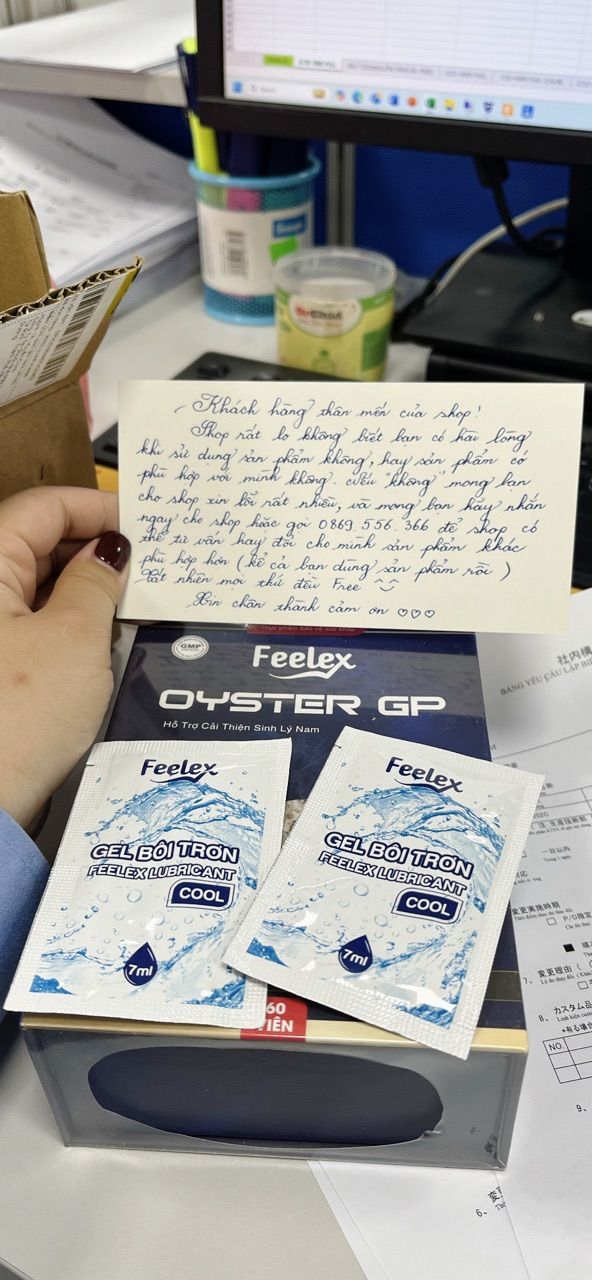 Khách hàng thân mến của shop!
Shop rất lo không biết bạn có hài lòng
khi sử dụng sản phẩm không, hay sản phẩm có
phù hợp với mình không. Nếu "không" mong bạn
cho shop xin lỗi rất nhiều, và mong bạn hãy nhắn
ngay cho shop hoặc gọi 0869.556.366 để shop có
thể tư vấn hay đổi cho mình sản phẩm khác
phù hợp hơn (kể cả bạn dùng sản phẩm rồi)
Tất nhiên mọi thứ đều Free
Xin chân thành cảm ơn
Thực phẩm bảo vệ sức khỏe
GMP
Feelex
OYSTER GP
Hỗ Trợ Cải Thiện Sinh Lý Nam
Feelex
GEL BÔI TRƠN
FEELEX LUBRICANT
COOL
7ml
Feelex
GEL BÔI TRƠN
FEELEX LUBRICANT
COOL
7ml
60
VIÊN
社内構
BẢNG YÊU CẦU LẬP BIÊ
一日以内
Trong 1 ngày
変更実施時期
P/O指定
7、変更理由 (
Lý do thay đổi
8、カスタム品
*有る場合
NO.
9、
6、